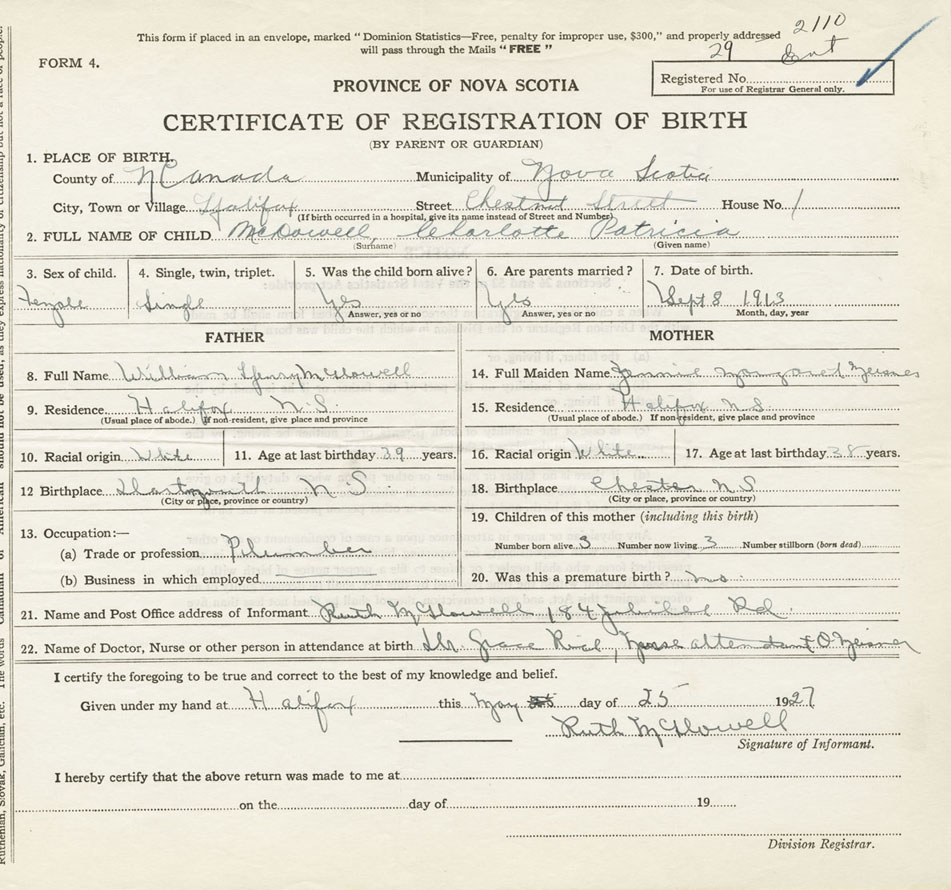 2110
This form if placed in an envelope, marked "Dominion Statistics—Free, penalty for improper use, $300," and properly addressed
will pass through the Mails "FREE"
29 Ent
FORM 4.
Registered No.
For use of Registrar General only.
PROVINCE OF NOVA SCOTIA
CERTIFICATE OF REGISTRATION OF BIRTH
(BY PARENT OR GUARDIAN)
1. PLACE OF BIRTH.
County of Canada Municipality of Nova Scotia
City, Town or Village Halifax Street Chestnut Street House No. 1
(If birth occurred in a hospital, give its name instead of Street and Number)
2. FULL NAME OF CHILD McDowell, Charlotte Patricia
(Surname) (Given name)
3. Sex of child. 4. Single, twin, triplet. 5. Was the child born alive? 6. Are parents married? 7. Date of birth.
Female Single Yes Yes Sept 8 1913
Answer, yes or no Answer, yes or no Month, day, year
FATHER MOTHER
8. Full Name William Henry McDowell 14. Full Maiden Name Jannie Margaret Zeisner
9. Residence Halifax N.S. 15. Residence Halifax N S
(Usual place of abode.) If non-resident, give place and province (Usual place of abode.) If non-resident, give place and province
10. Racial origin White 11. Age at last birthday 39 years. 16. Racial origin White 17. Age at last birthday 38 years.
12 Birthplace Dartmouth N S 18. Birthplace Chester N S
(City or place, province or country) (City or place, province or country)
13. Occupation:— 19. Children of this mother (including this birth)
(a) Trade or profession Plummber Number born alive 3 Number now living 3 Number stillborn (born dead)
(b) Business in which employed 20. Was this a premature birth? no
21. Name and Post Office address of Informant Ruth McDowell 184 Jubilee Rd.
22. Name of Doctor, Nurse or other person in attendance at birth Dr. Grace Rice, Nurse attendant O. Zeisner
I certify the foregoing to be true and correct to the best of my knowledge and belief.
Given under my hand at Halifax this May day of 25 1927
Ruth McDowell
Signature of Informant.
I hereby certify that the above return was made to me at
on the day of 19
Division Registrar.